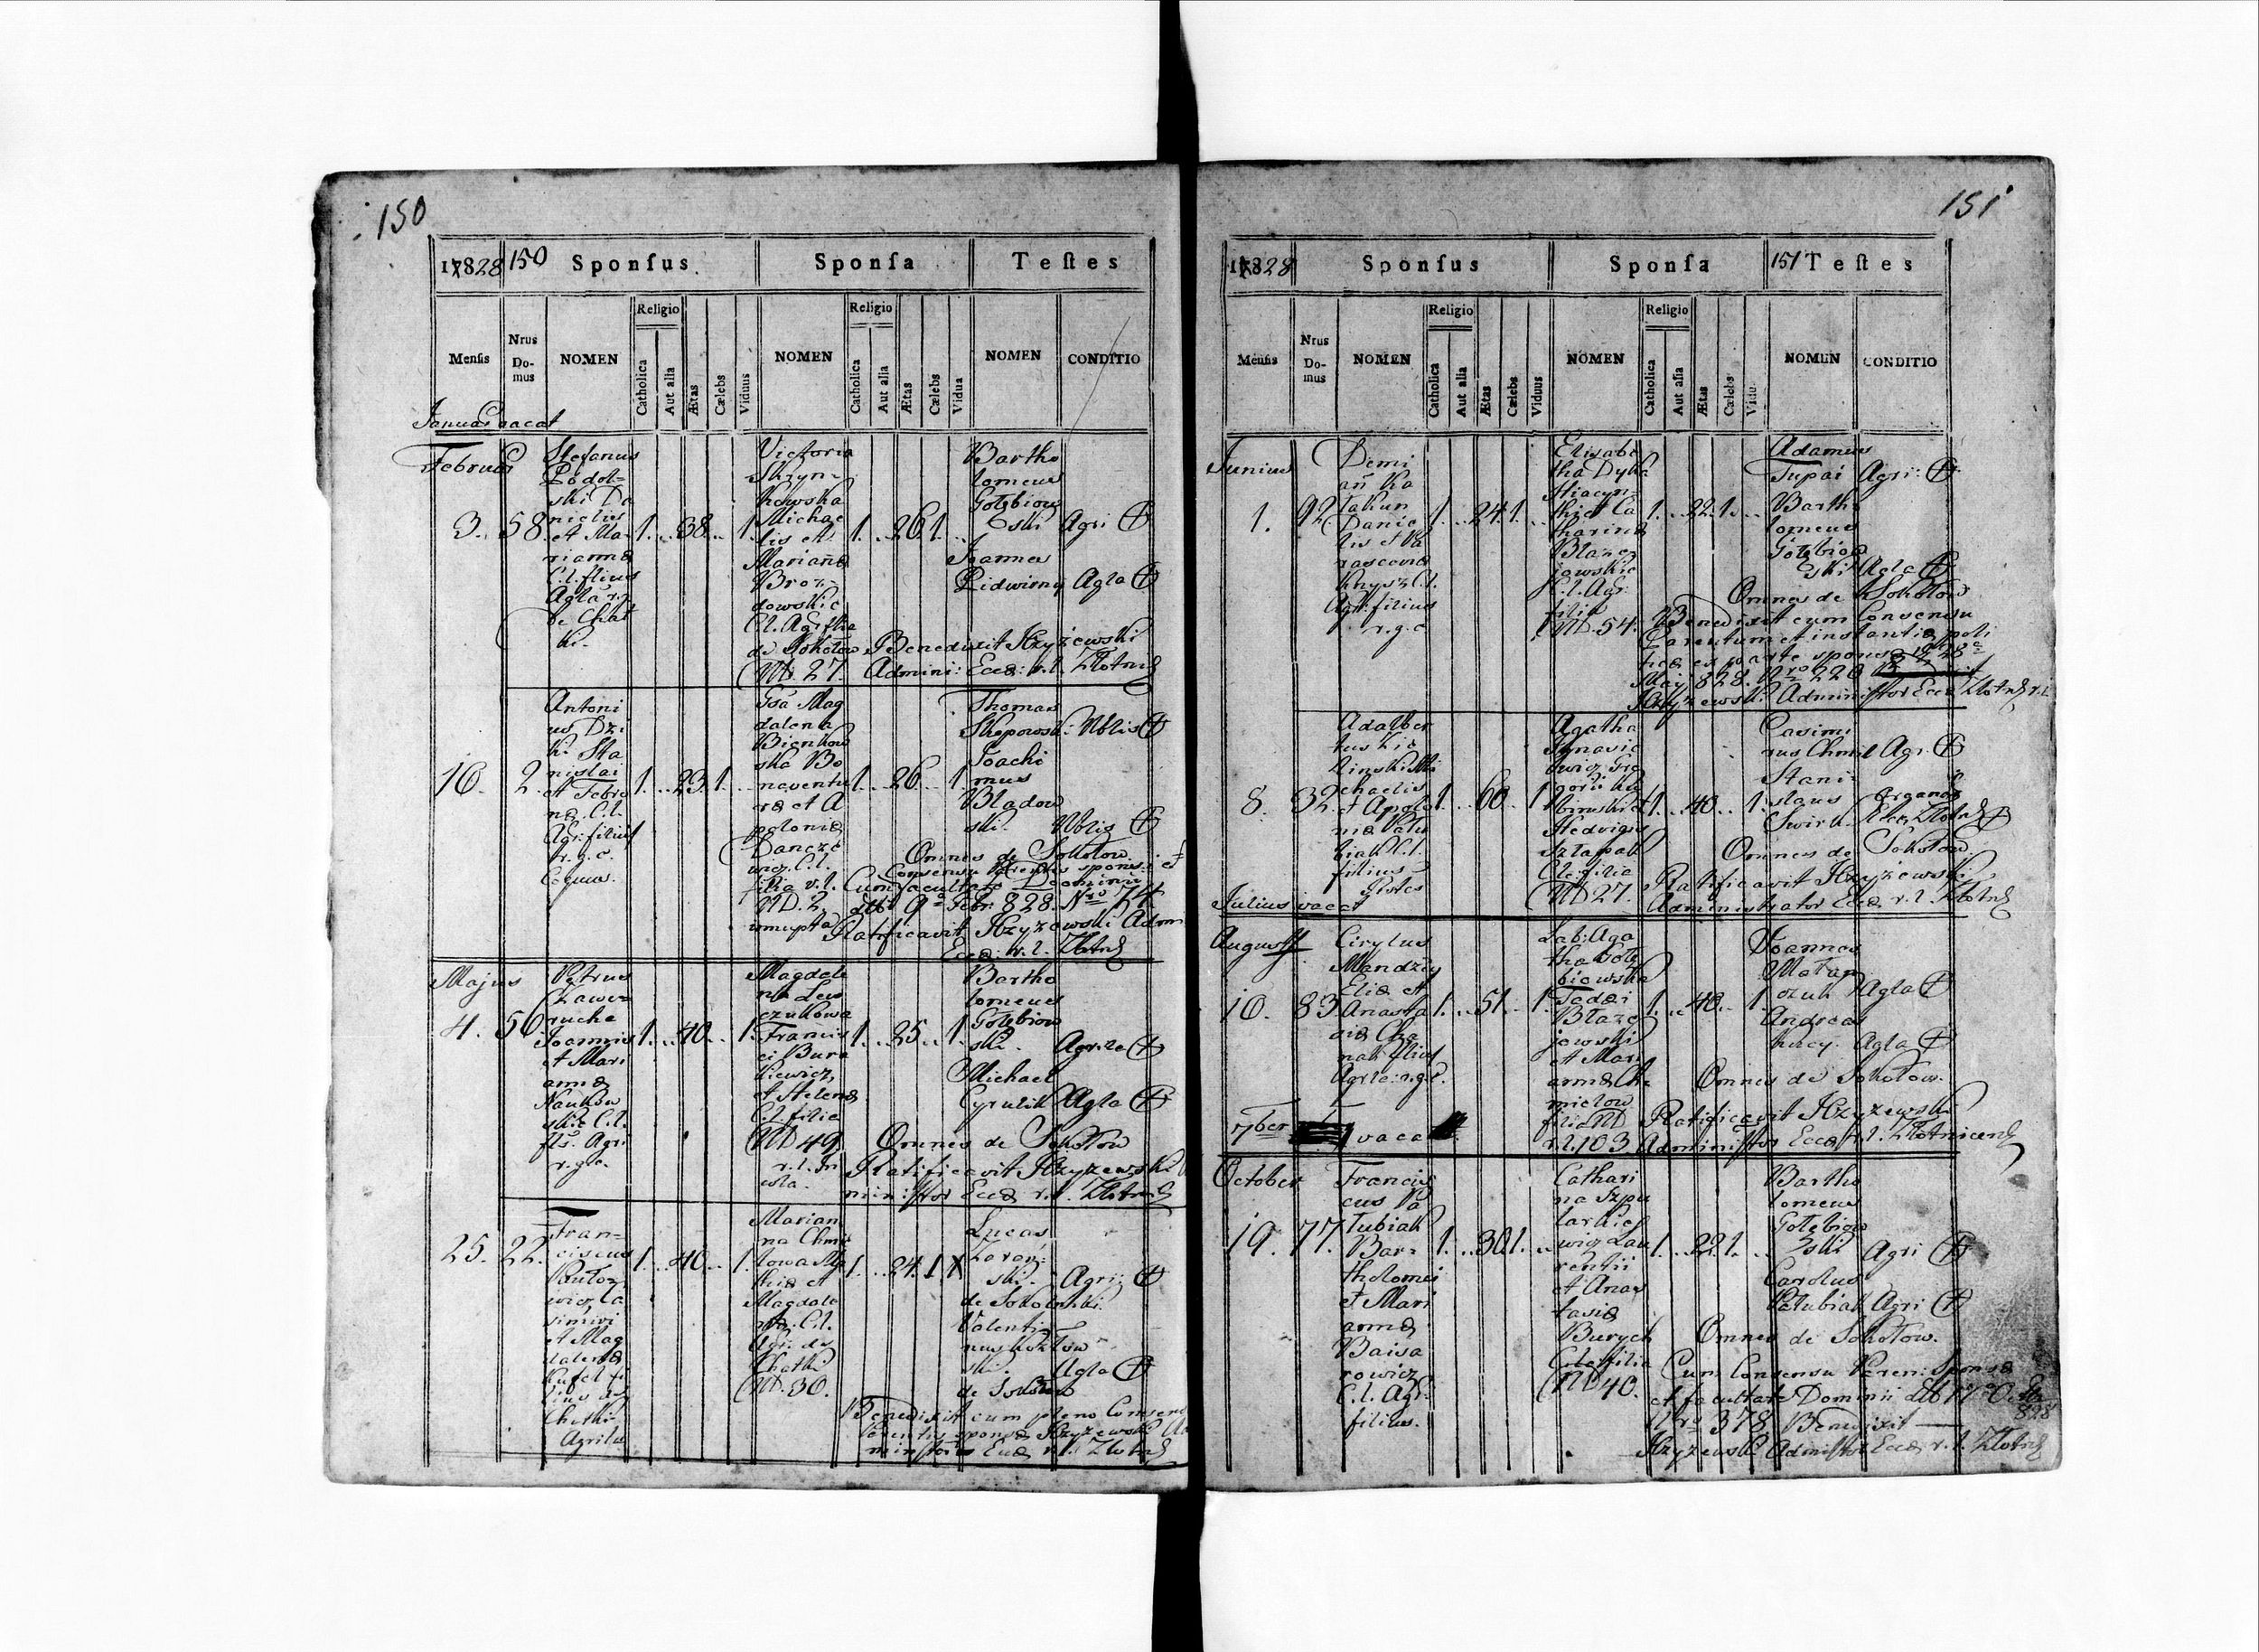 150
1828 150 Sponsus Sponsa Testes
Mensis
Nrus Do-mus
NOMEN
Religio
Catholica
Aut alia
Ætas
Cælebs
Viduus
NOMEN
Religio
Catholica
Aut alia
Ætas
Cælebs
Vidua
NOMEN
CONDITIO
Januar vacat
Februar
3. 58.
Stefanus
Podol-
ski Da
nielis
et Ma
rianna
C.l. filius
Agla r.g.
de Chat
ki.
1. 38. 1.
Victoria
Skrzyn-
kowska
Michae
lis et
Marianna
Broz-
dowskie
C.l. Agr filia
de Sokołow
ND. 27.
1. 26. 1.
Bartho
lomeus
Gołębiow
ski Agri
Joannes
Pidwirny Agla
Benedixit Krzyżewski
Admini: Eccæ: r.l. Złotn
10. 2.
Antoni
us Dzi
ki Sta
nislai
et Febro
næ C.l.
Agr. filius
r.g.c.
1. 23. 1.
Gsa Mag
dalena
Bienkow
ska Bo
naventu
ræ et A
polonia
Dancze
wicz C.l.
filia r.l.
ND. 2.
innupta
1. 26. 1.
Thomas
Skepowski Nblis
Joachi
mus
Bladow
ski. Nblis
Omnes de Sokołow.
Consensu Parentis sponsi et
Cum facultate Dominii
ddto 9a Febr. 828. Nro 74.
Ratificavit Krzyżewski Adm
Eccæ r.l. Złotn
Majus
4. 50.
Petrus
Zawe-
rucha
Joannis
et Mari
annæ
Naukow
skie C.l.
fls. Agri
r.g.c.
1. 40. 1.
Magdale
na Lew
czukowa
Francis
ci Bura
kiewicz
et Helenæ
C.l. filia
ND. 49.
r.l. In
cola.
1. 25. 1.
Bartho
lomeus
Gołębiow
ski. Agrcla
Michael
Cyrulik Agla
Omnes de Sokołow
Ratificavit Krzyżewski
ministor Eccæ r.l. Złotn
25. 22.
Fran-
ciscus
Ca
simiri
et Mag
dalenæ
fi
lius de
Chatki
Agrilæ
1. 40. 1.
Marian
na Chmie
lowa Ma
thiæ et
Magdale
næ C.l.
Agr. de
Chatki
ND. 30.
1. 24. 1 X
Lucas
Zaran-
ski. Agri:
de Sokolniki.
Valenti-
nus Kozłow
ski. Agla
de Sokołow
Benedixit cum pleno Consens
Parentis sponsæ Krzyżewski Ad
ministor Eccæ r.l. Złotn
151
1828 Sponsus Sponsa 151 Testes
Mensis
Nrus Do-mus
NOMEN
Religio
Catholica
Aut alia
Ætas
Cælebs
Viduus
NOMEN
Religio
Catholica
Aut alia
Ætas
Cælebs
Vidu.
NOMEN
CONDITIO
Junius
1. 92
Demi
an Ka
łakun
Danie
lis et Pa
rascevia
Knysz C.l.
Agr. filius
r.g.c
1. 24. 1.
Elisabe
tha Dyka
Hiacyn-
thi et Ca
tharina
Błaże
jowskie
C.l. Agr.
filia
ND. 54.
1. 22. 1.
Adamus
Tupai Agri:
Bartho
lomeus
Gołębiow
ski Agla
Omnes de Sokołow
Benedixit cum Consensu
Parentum et instantiæ poli
ticæ ex parte sponsæ dto 28
Maji 828. Nro 220
Krzyżewski Administor Eccæ Złotn r.l.
8. 32.
Adalber
tus Kie
Mi
chaelis
et Apolo
niæ Patu
biak C.l.
filius
1. 60. 1
Agatha
Ignacie
wicz Gre
gorii
Hedvigis
Szłapak
C.l. filia
ND 27.
1. 40. 1.
Casimi
rus Chmil Agr.
Stani-
slaus
Swirk. Organar
Eccæ Złotn
Omnes de Sokołow.
Ratificavit Krzyżewski
Administrator Eccæ r.l. Złotn
Julius vacat
August
10. 83
Cirylus
Mandziy
Eliæ et
Anasta
siæ Cha
nak filius
Agrla: r.g.c.
1. 51. 1.
Lab: Aga
tha Gołę
biewska
Tadæi
Błaże
jowski
et Mari
annæ Ch
mielow
filia ND
r.l. 103
1. 40. 1.
Joannes
Matwij
czuk Agla
Andreas
Agla
Omnes de Sokołow.
Ratificavit Krzyżewski
Administor Eccæ r.l. Złotnicens
7ber vaca
October
19. 77.
Francis
cus Pa
tubiak
Bar-
tholomei
et Mari
annæ
Baisa
rowicz
C.l. Agr.
filius.
1. 30. 1.
Cathari
na Szpu
larkie
wicz Lau
rentii
et Anas
tasiæ
Burych
C.l. filia
ND 40.
1. 22. 1.
Bartho
lomeus
Gołębiow
ski Agri
Carolus
Patubiak Agri
Omnes de Sokołow.
Cum Consensu Paren: Sponsæ
et facultate Dominii ddto 17 Octobr
828
Nro 378. Benedixit
Krzyżewski Administor Eccæ r.l. Złotn